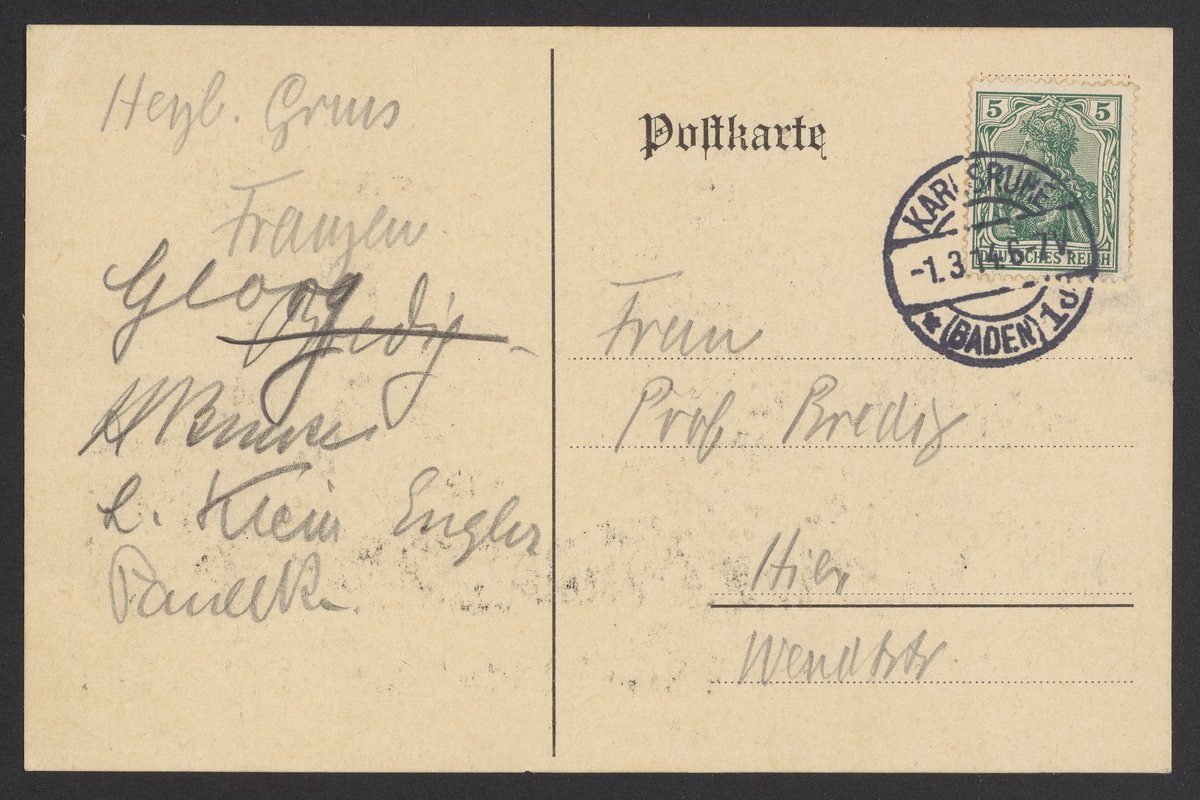 Herzl. Gruss
Franzen
Georg
Bredig
H Bunte
L. Klein Engler
Postkarte
5 5
DEUTSCHES REICH
KARLSRUHE
-1.3.14.6-7V
* (BADEN)
Frau
Prof. Bredig
Hier
Wendtstr.